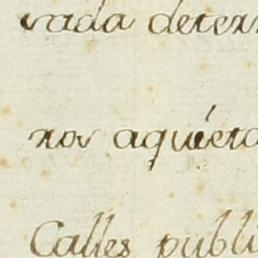 vada deter
nos aquieta
Calles publi